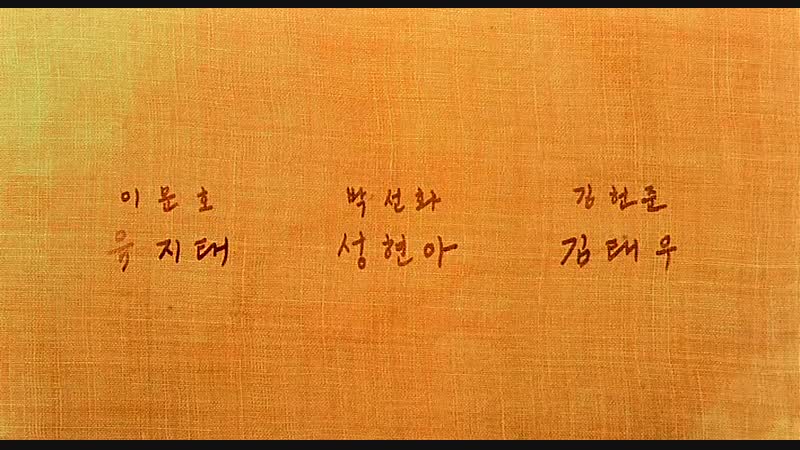 이문호 박선화 김헌준
유지태 성현아 김태우